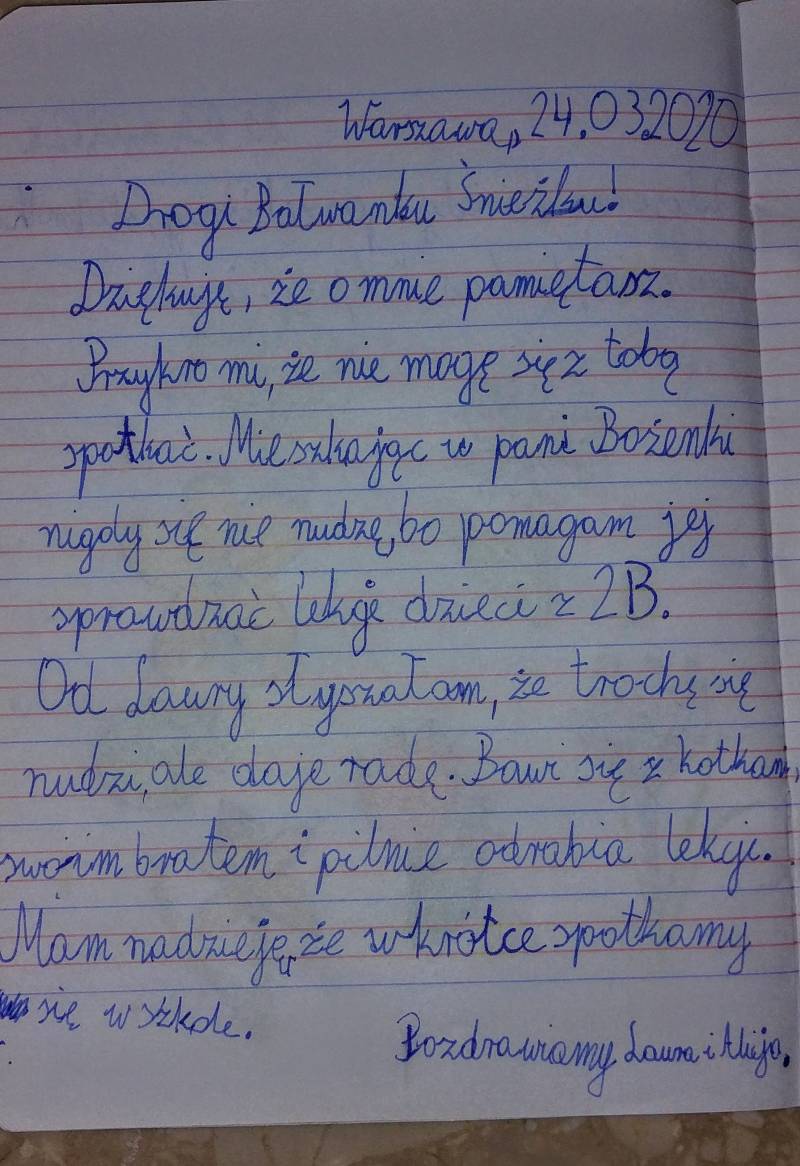 Warszawa, 24.03.2020
Drogi Bałwanku Śnieżku!
Dziękuję, że o mnie pamiętasz.
Przykro mi, że nie mogę się z tobą
spotkać. Mieszkając w pani Bożenki
nigdy się nie nudzę, bo pomagam jej
sprawdzać lekcje dzieci z 2B.
Od Laury słyszałam, że trochę się
nudzi, ale daje radę. Bawi się z kotkami,
swoim bratem i pilnie odrabia lekcje.
Mam nadzieję, że wkrótce spotkamy
się w szkole.
Pozdrawiamy Laura i Alicja.